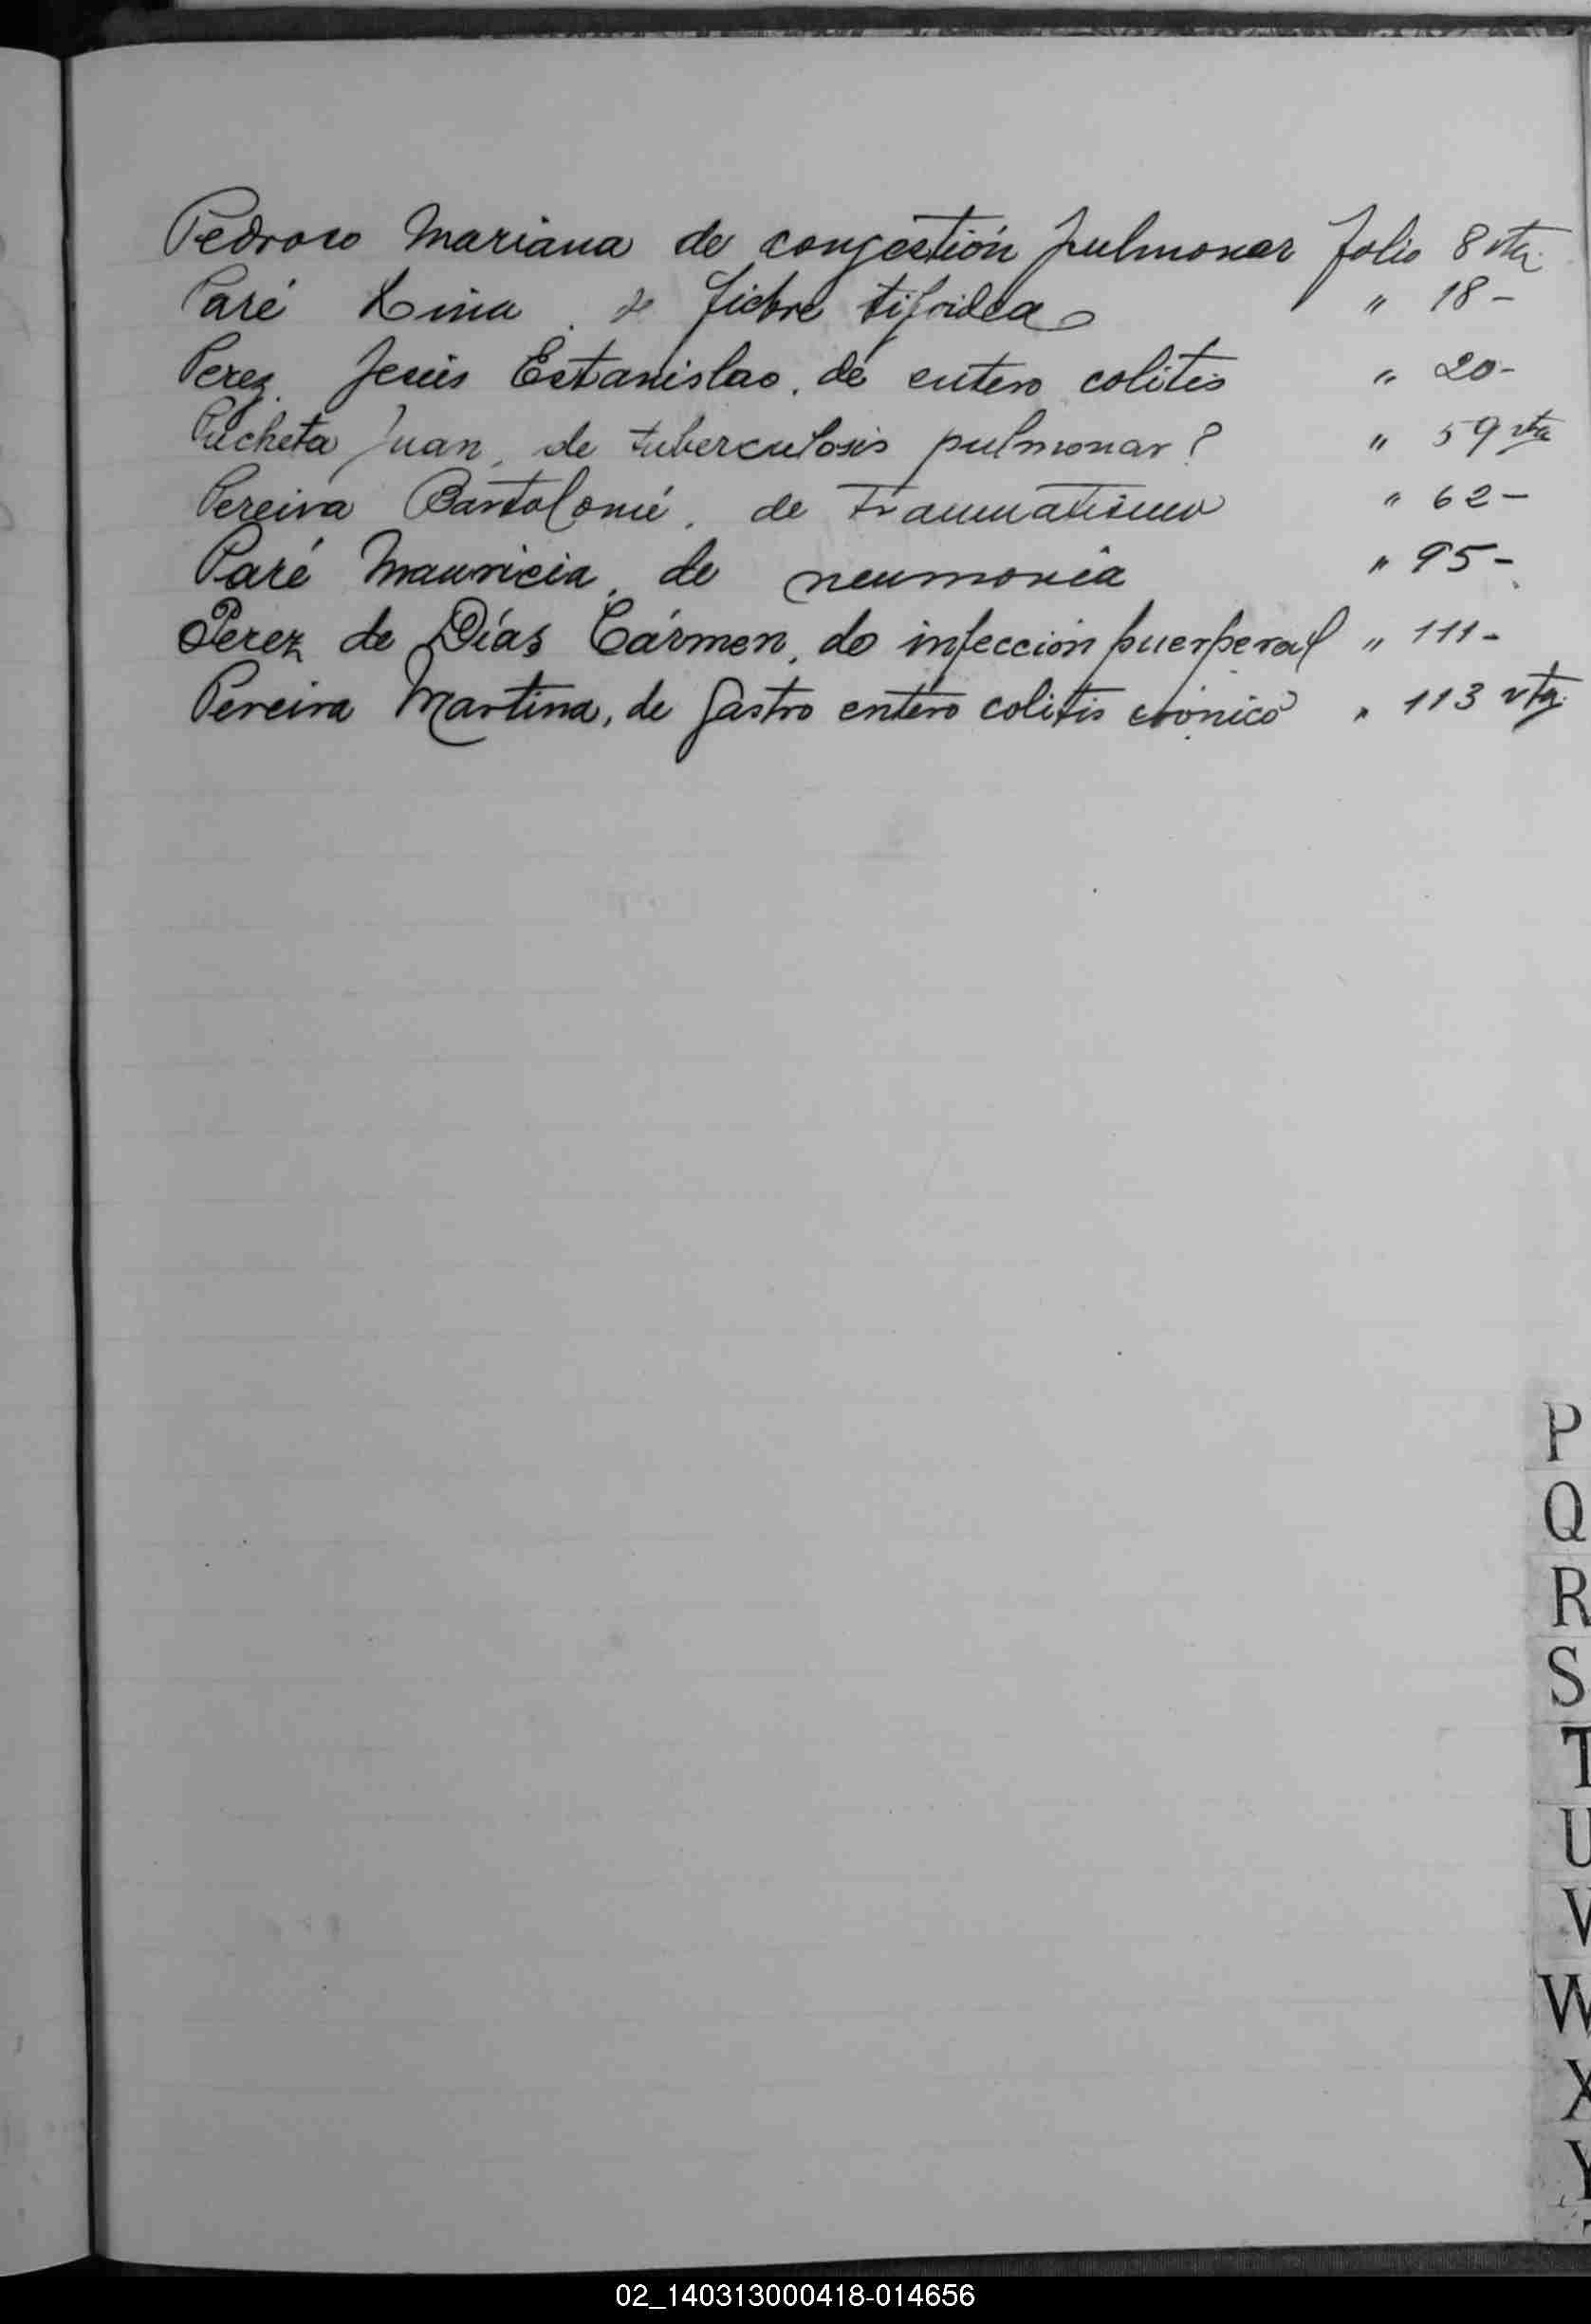 Pedroso Mariana de congestión pulmonar folio 8 vta.
Paré Lina. de fiebre tifoidea " 18-
Perez Jesús Estanislao, de entero colitis " 20-
Pucheta Juan, de tuberculosis pulmonar? " 59 vta
Pereira Bartolomé, de traumatismo " 62-
Paré Mauricia, de neumonia " 95-
Perez de Días Cármen, de infección puerperal " 111-
Pereira Martina, de gastro entero colitis crónico " 113 vta.
P
Q
R
S
T
U
V
W
X
Y
02_140313000418-014656